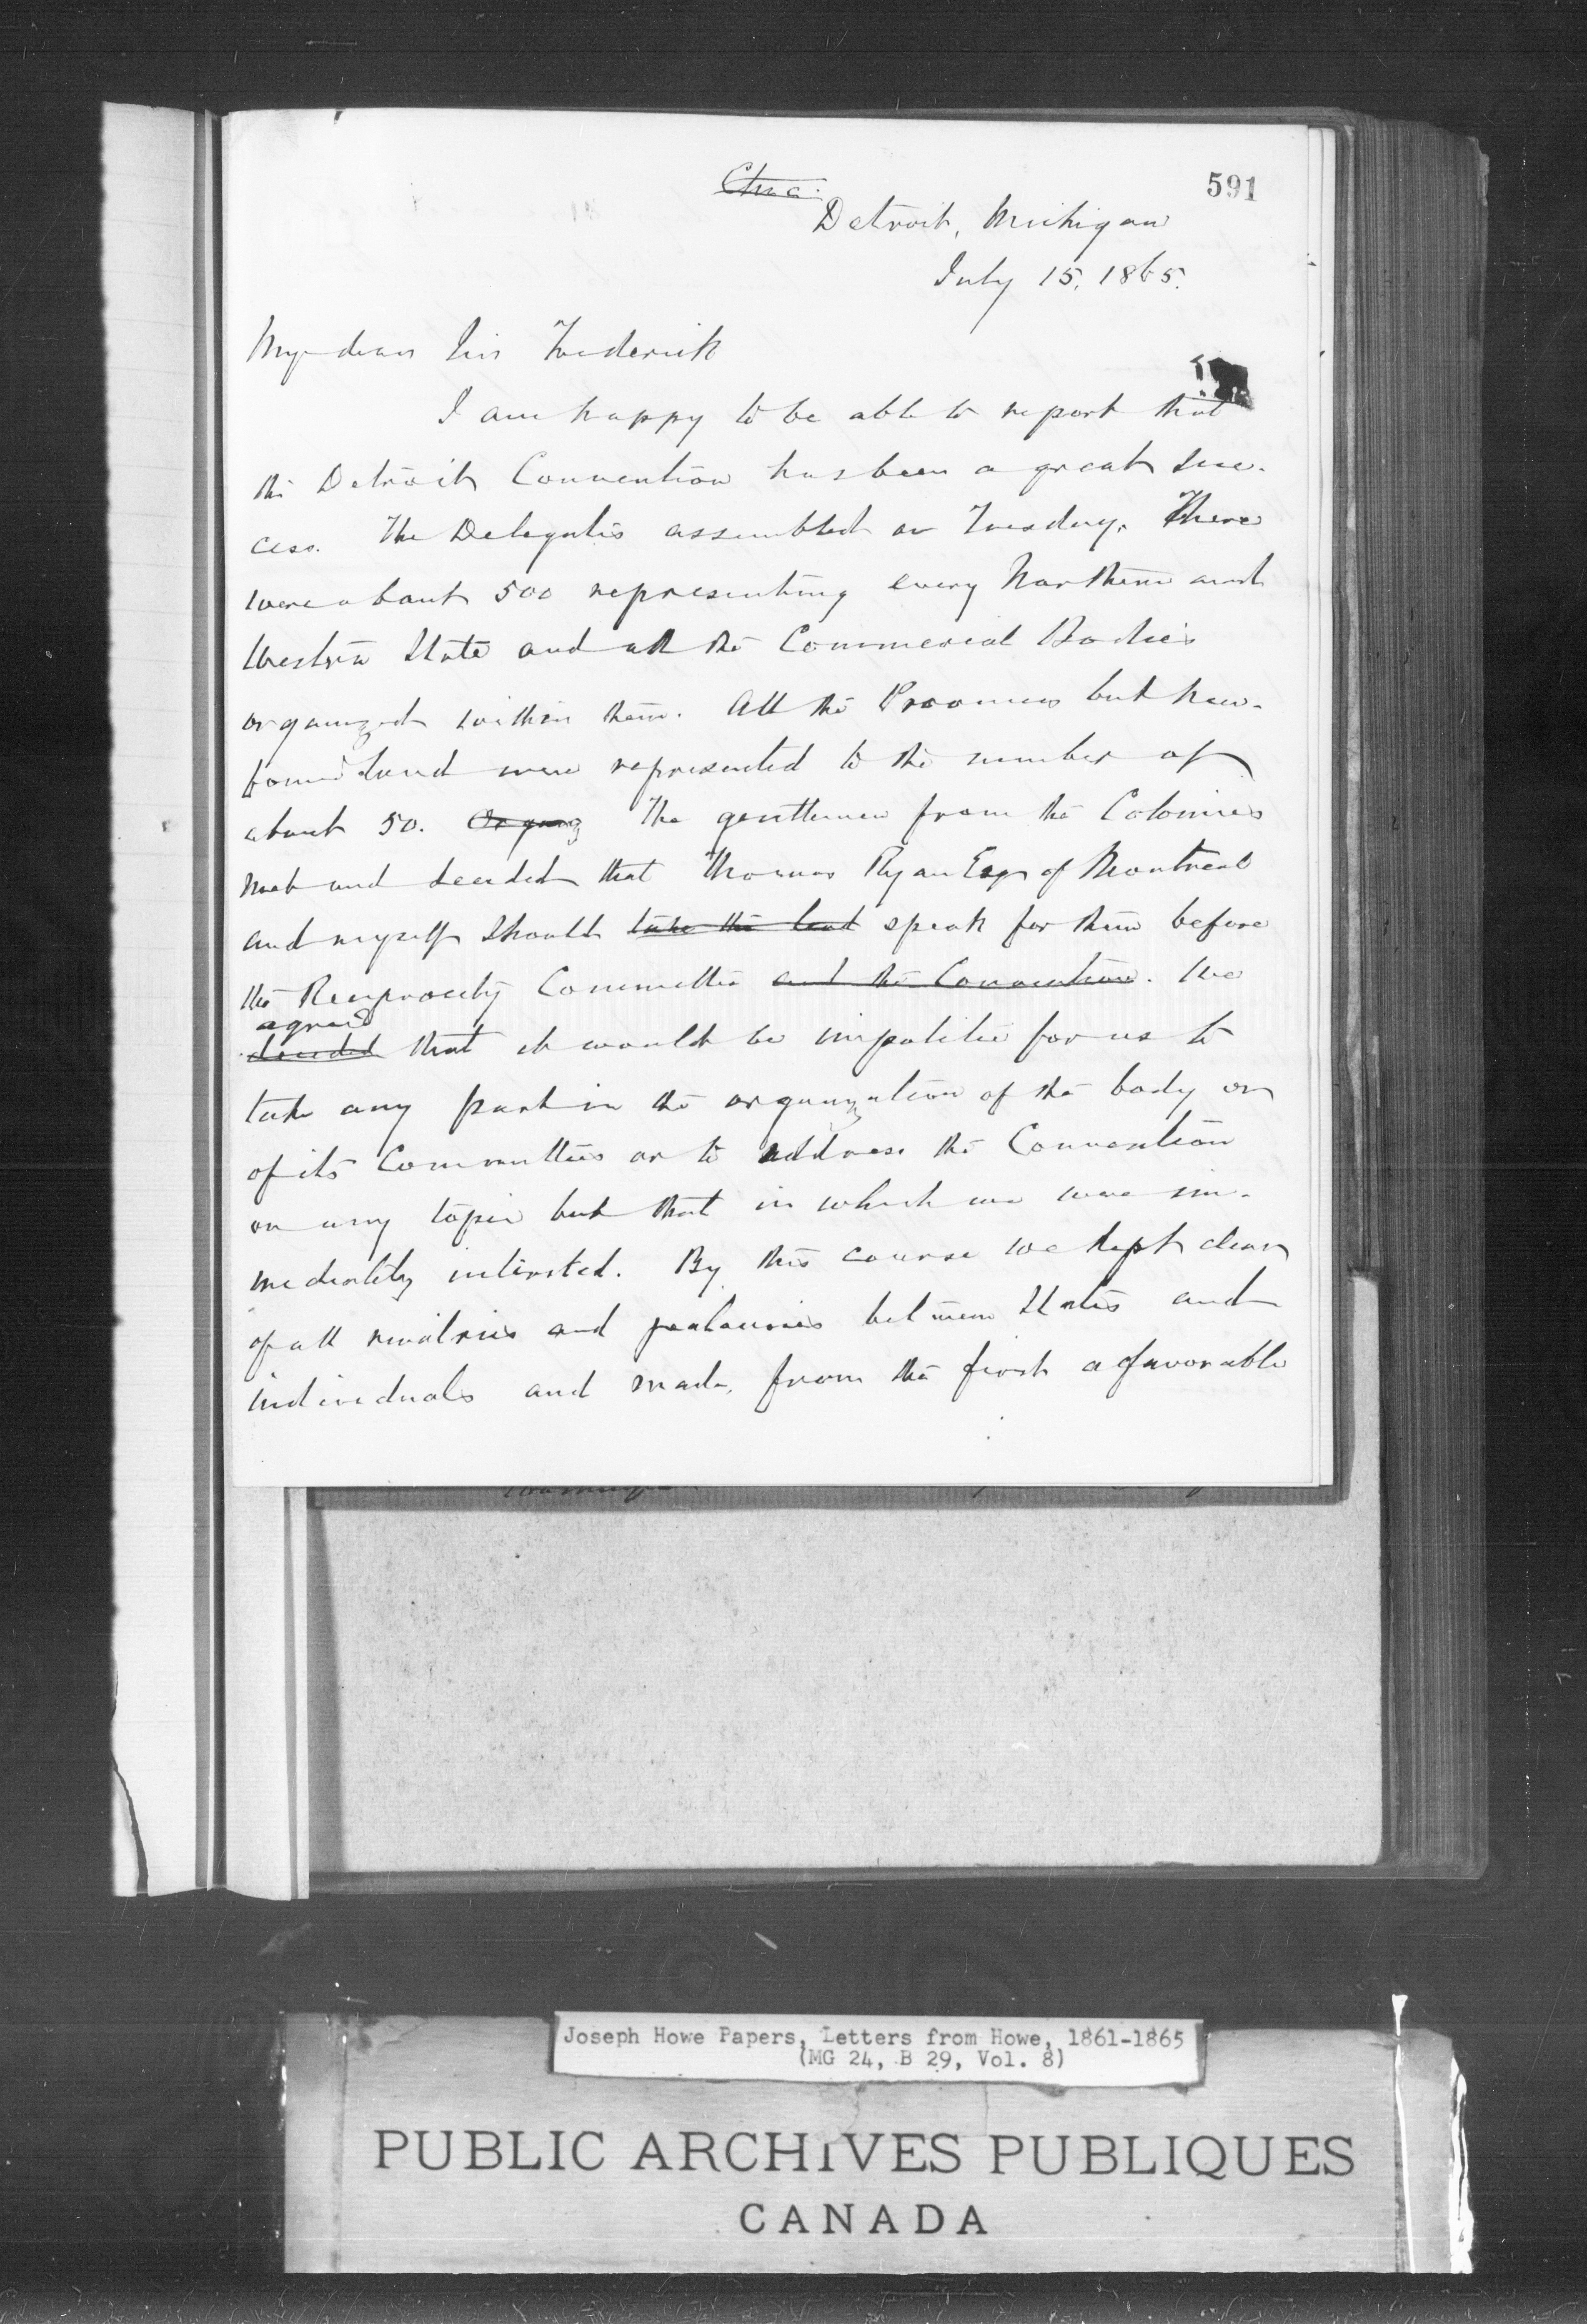 591
Detroit, Michigan
July 15, 1865.
My dear Sir Frederick
I am happy to be able to report that
the Detroit Convention has been a great suc-
cess. The Delegates assembled on Tuesday. There
were about 500 representing every Northern and
Western State and all the Commercial Bodies
organized within them. All the Provinces but New-
foundland were represented to the number of
about 50. Organiz The gentlemen from the Colonies
met and decided that Thomas Ryan Esqr of Montreal
and myself should take the lead speak for them before
the Reciprocity Committee and the Convention. We
agreed
decided that it would be impolitic for us to
take any part in the organization of the body or
of its Committees or to address the Convention
on any topic but that in which we were im-
mediately interested. By this course we kept clear
of all rivalries and jealousies between States and
individuals and made, from the first a favorable
Joseph Howe Papers, Letters from Howe, 1861-1865
(MG 24, B 29, Vol. 8)
PUBLIC ARCHIVES PUBLIQUES
CANADA